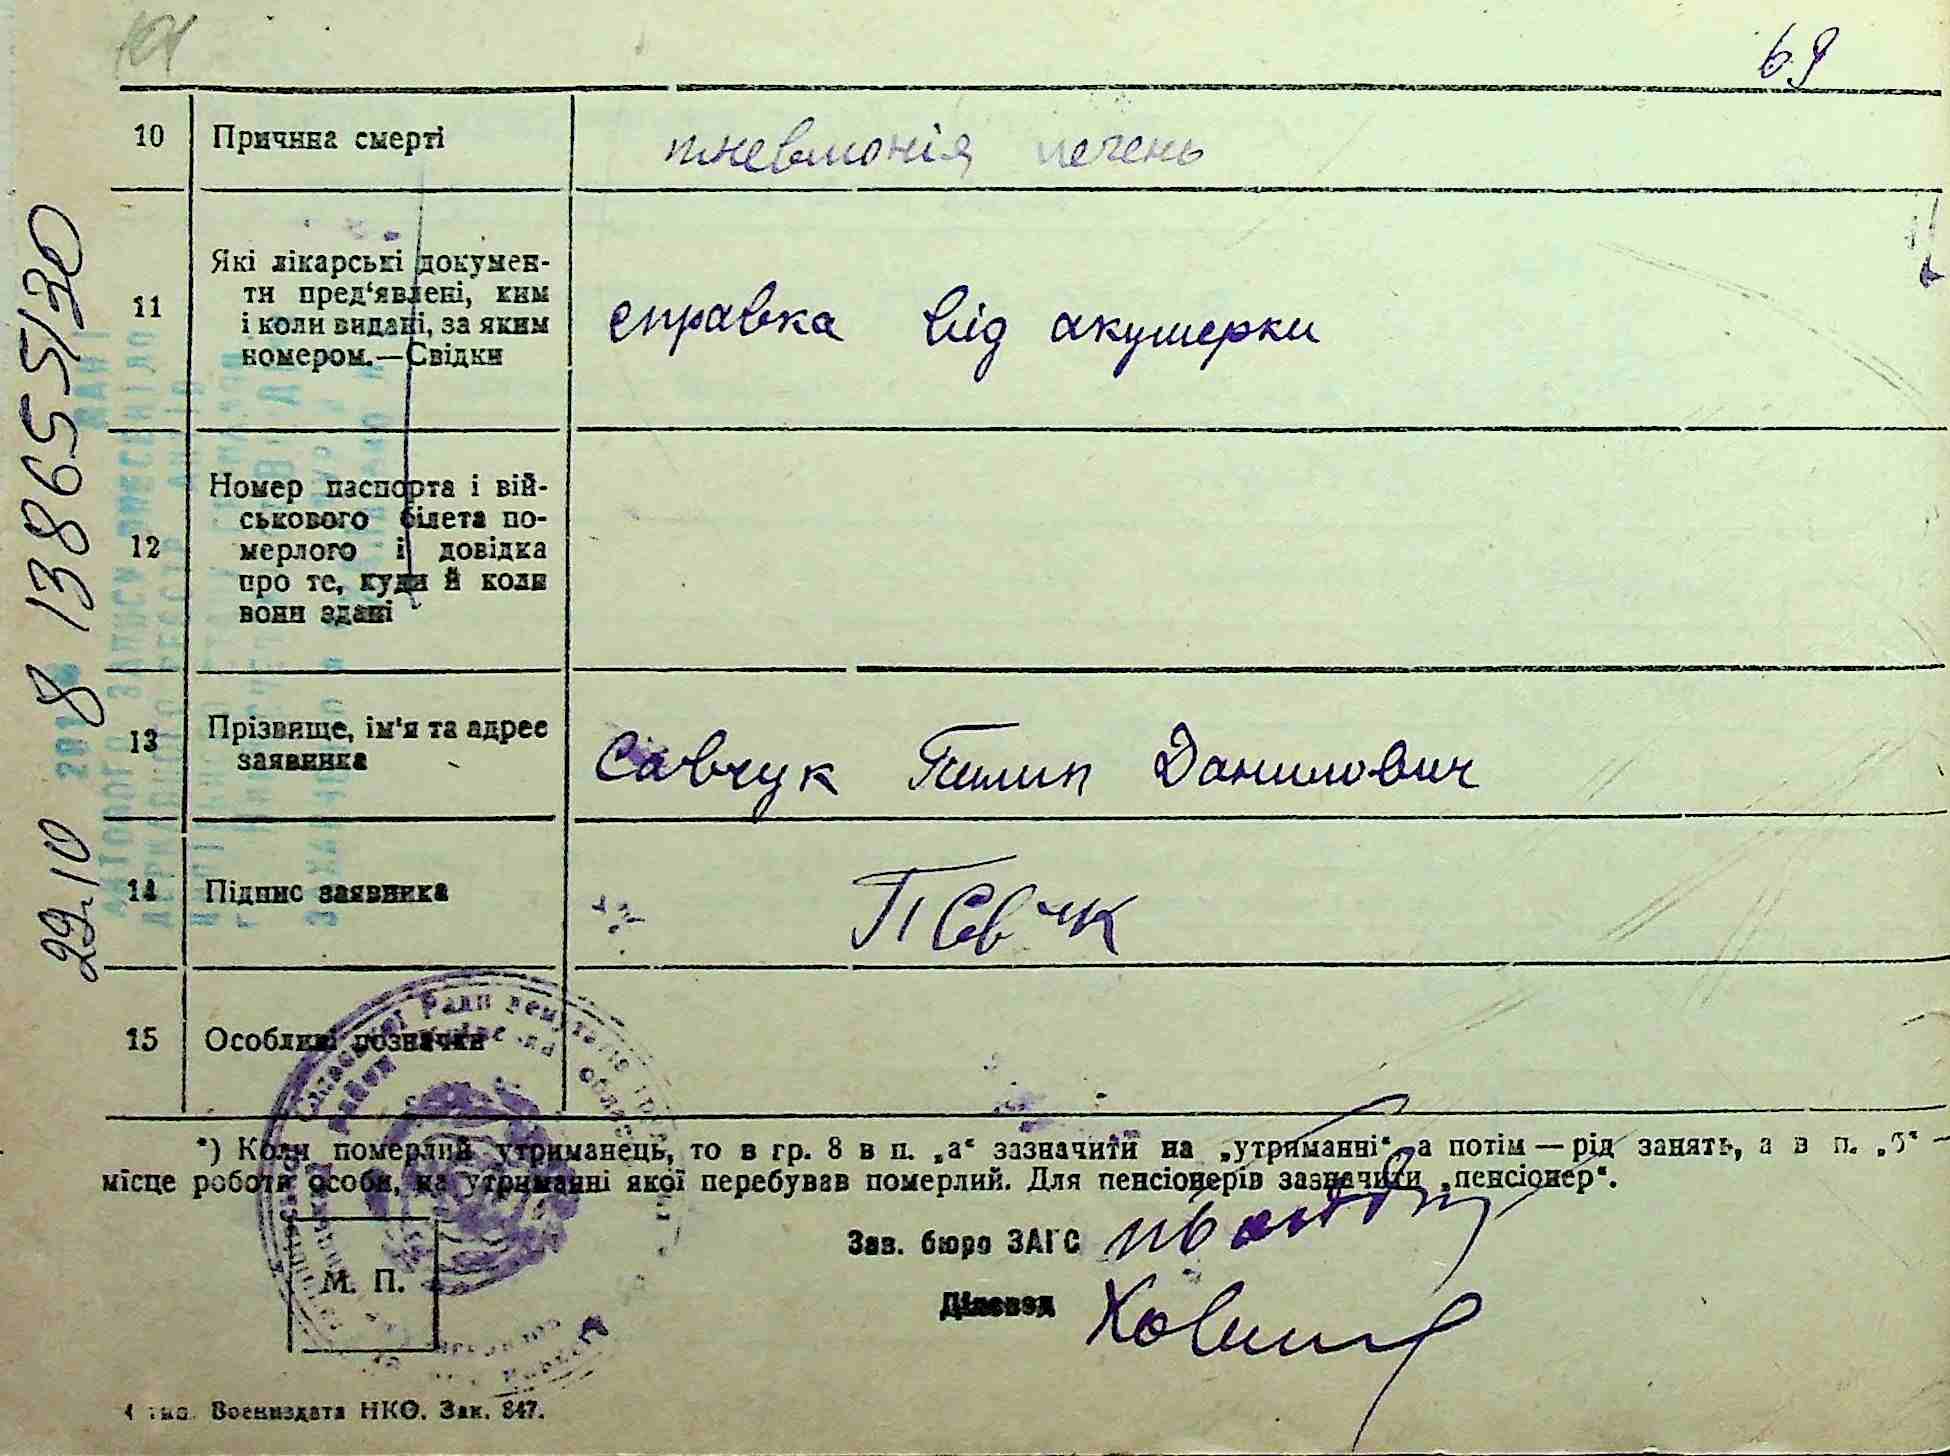 69
10 Причина смерті пневмонія печень
11 Які лікарські документи пред'явлені, ким
і коли видані, за яким
номером.—Свідки
справка від акушерки
12 Номер паспорта і військового
білета померлого
і довідка
про те, куди й коли
вони здані
13 Прізвище, ім'я та адрес
заявника
Савчук Пилип Данилович
14 Підпис заявника
15 Особливі позначки
*) Коли померлий утриманець, то в гр. 8 в п. „а“ зазначити на „утриманні“ а потім — рід занять, а в п. „б“ —
місце роботи особи, на утриманні якої перебував померлий. Для пенсіонерів зазначити „пенсіонер“.
Зав. бюро ЗАГС
Діловод
М. П.
тип. Воениздата НКО. Зак. 847.
29.10 8 138655/30